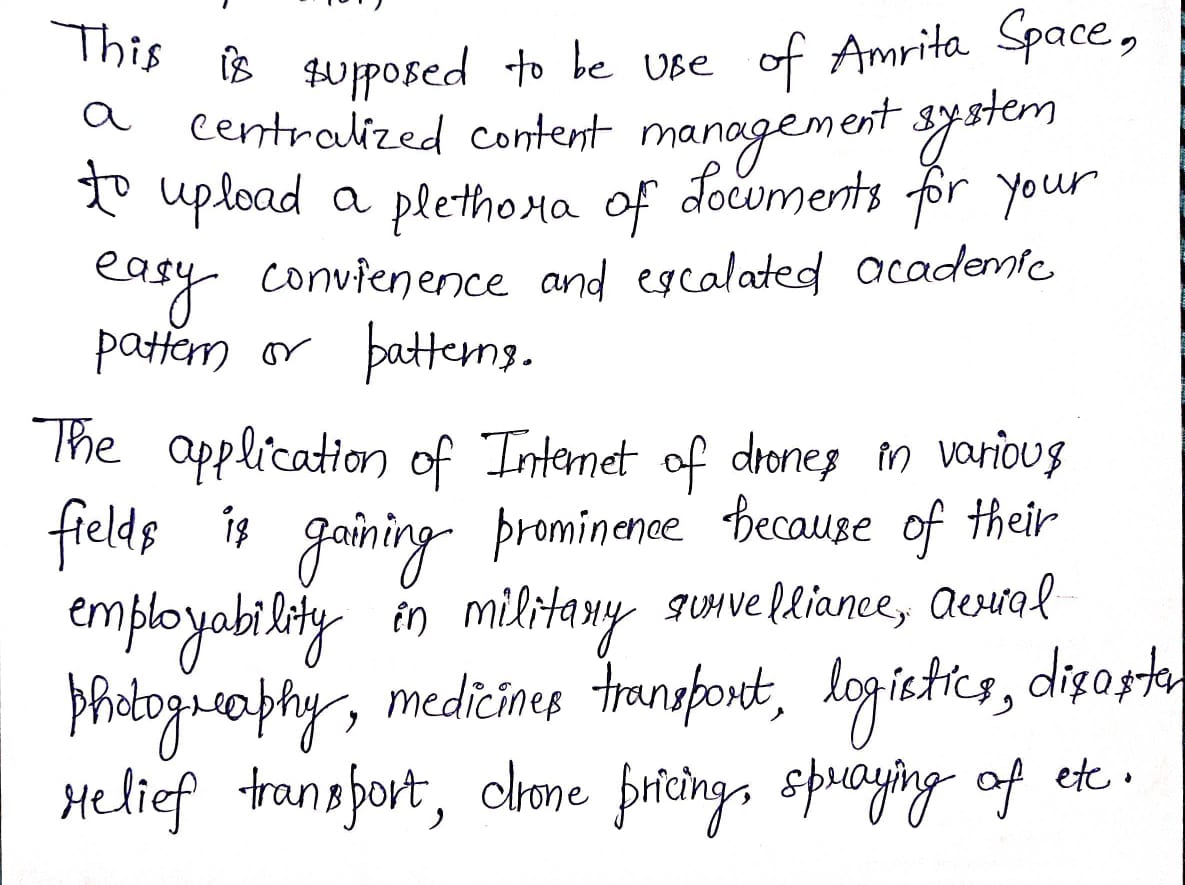 This is supposed to be use of Amrita Space,
a centralized content management system
to upload a plethora of documents for your
easy convienence and escalated academic
pattern or patterns.
The application of Internet of drones in various
fields is gaining prominence because of their
employability in military survelliance, aerial
photography, medicines transport, logistics, disaster
relief transport, drone pricing, spraying of etc.